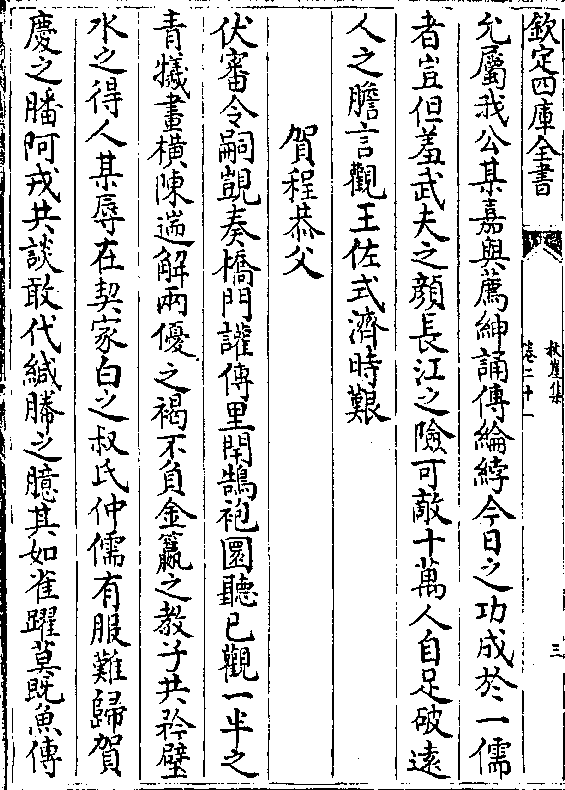 欽定四庫全書
秋崖集
卷二十一
三
允屬我公某嘉與薦紳誦傳綸綍今日之功成於一儒
者豈但羞武夫之顔長江之險可敵十萬人自足破逺
人之膽言觀王佐式濟時艱
賀程恭父
伏審令嗣覬奏橋門讙傳里閈鵠袍圜聽已觀一半之
青㹛畫橫陳遄解兩優之褐不負金籯之教子共矜壁
水之得人某辱在契家白之叔氏仲儒有服難歸賀
慶之膰阿戎共談敢代緘縢之臆其如雀躍莫既魚傳